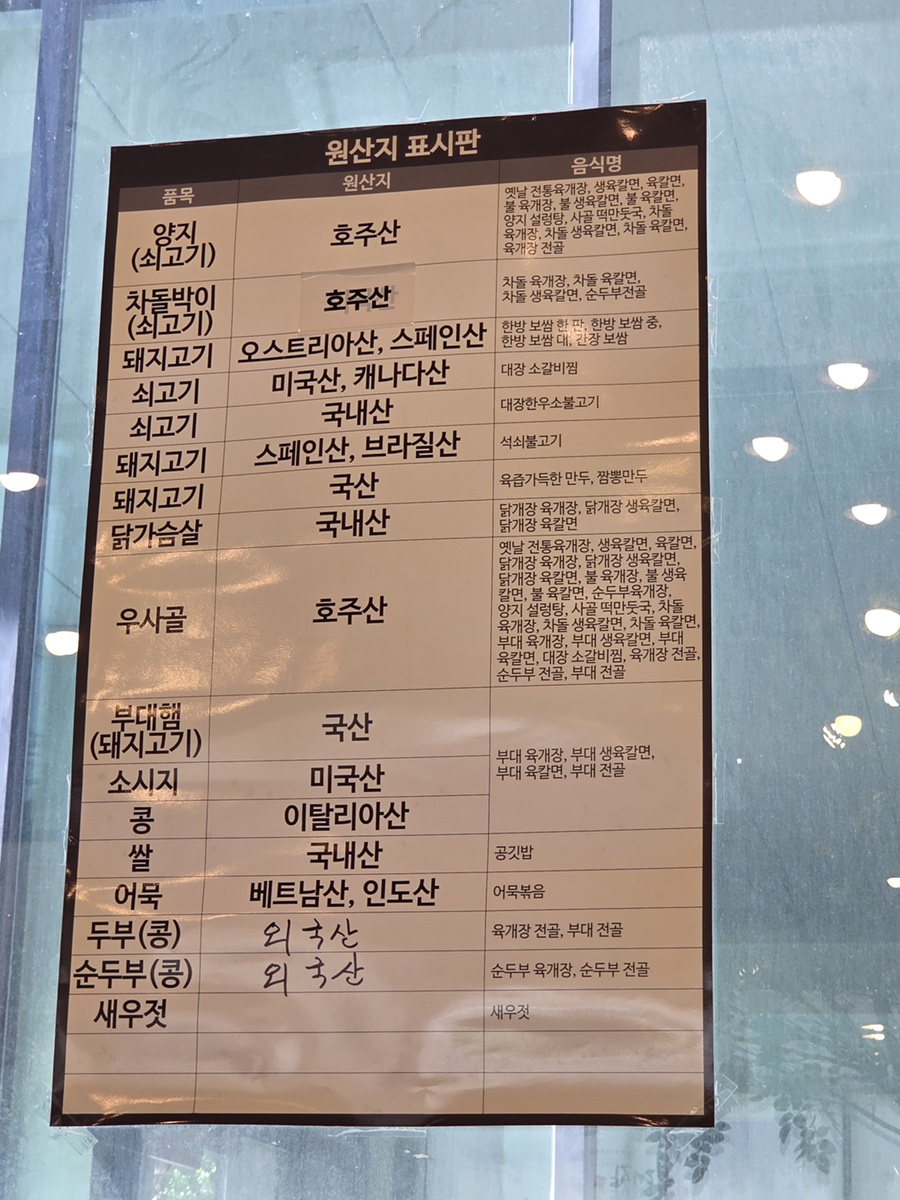 원산지 표시판
품목 원산지 음식명
양지
(쇠고기)
호주산
옛날 전통육개장, 생육칼면, 육칼면,
불 육개장, 불 생육칼면, 불 육칼면,
양지 설렁탕, 사골 떡만둣국, 차돌
육개장, 차돌 생육칼면, 차돌 육칼면,
육개장 전골
차돌박이
(쇠고기)
호주산
차돌 육개장, 차돌 육칼면,
차돌 생육칼면, 순두부전골
돼지고기 오스트리아산, 스페인산
한방 보쌈 한 판, 한방 보쌈 중,
한방 보쌈 대, 간장 보쌈
쇠고기 미국산, 캐나다산 대장 소갈비찜
쇠고기 국내산 대장한우소불고기
돼지고기 스페인산, 브라질산 석쇠불고기
돼지고기 국산 육즙가득한 만두, 짬뽕만두
닭가슴살 국내산
닭개장 육개장, 닭개장 생육칼면,
닭개장 육칼면
우사골 호주산
옛날 전통육개장, 생육칼면, 육칼면,
닭개장 육개장, 닭개장 생육칼면,
닭개장 육칼면, 불 육개장, 불 생육
칼면, 불 육칼면, 순두부육개장,
양지 설렁탕, 사골 떡만둣국, 차돌
육개장, 차돌 생육칼면, 차돌 육칼면,
부대 육개장, 부대 생육칼면, 부대
육칼면, 대장 소갈비찜, 육개장 전골,
순두부 전골, 부대 전골
부대햄
(돼지고기)
국산
소시지 미국산
콩 이탈리아산
부대 육개장, 부대 생육칼면,
부대 육칼면, 부대 전골
쌀 국내산 공깃밥
어묵 베트남산, 인도산 어묵볶음
두부(콩) 외국산 육개장 전골, 부대 전골
순두부(콩) 외국산 순두부 육개장, 순두부 전골
새우젓 새우젓